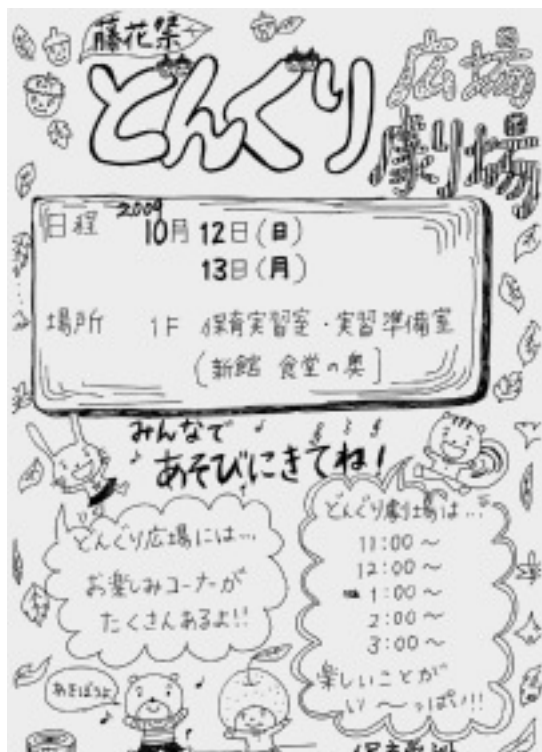 藤花祭
どんぐり
広場
劇場
日程 2009 10月 12日(日)
13日(月)
場所 1F 保育実習室・実習準備室
(新館 食堂の奥)
みんなで
あそびにきてね!
どんぐり広場には…
お楽しみコーナーが
たくさんあるよ!!
どんぐり劇場は…
11:00〜
12:00〜
1:00〜
2:00〜
3:00〜
楽しいことが
い〜っぱい!!
あそぼうよ